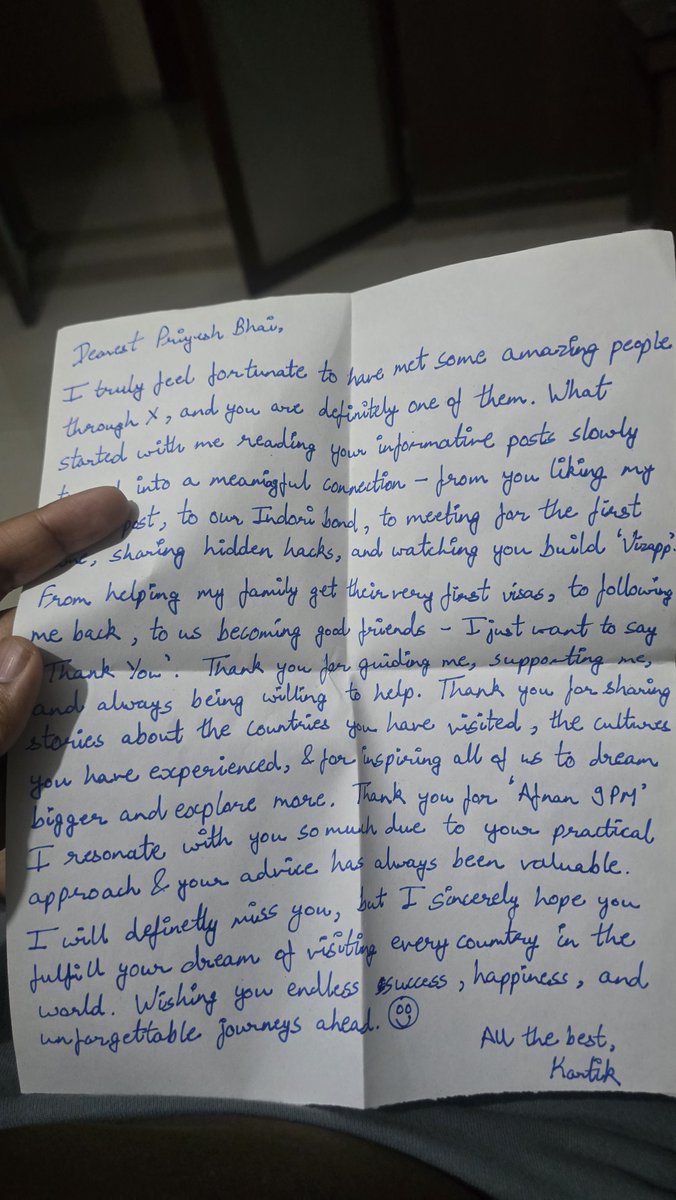 Dearest Priyesh Bhai,
I truly feel fortunate to have met some amazing people
through X, and you are definitely one of them. What
started with me reading your informative posts slowly
into a meaningful connection - from you liking my
post, to our Indori bond, to meeting for the first
sharing hidden hacks, and watching you build 'Vizapp'.
From helping my family get their very first visas, to following
me back, to us becoming good friends - I just want to say
'Thank You'. Thank you for guiding me, supporting me,
and always being willing to help. Thank you for sharing
stories about the countries you have visited, the cultures
you have experienced, & for inspiring all of us to dream
bigger and explore more. Thank you for 'Afnan 9PM'
I resonate with you so much due to your practical
approach & your advice has always been valuable.
I will definetly miss you, but I sincerely hope you
fulfill your dream of visiting every country in the
world. Wishing you endless success, happiness, and
unforgettable journeys ahead.
All the best,
Kartik